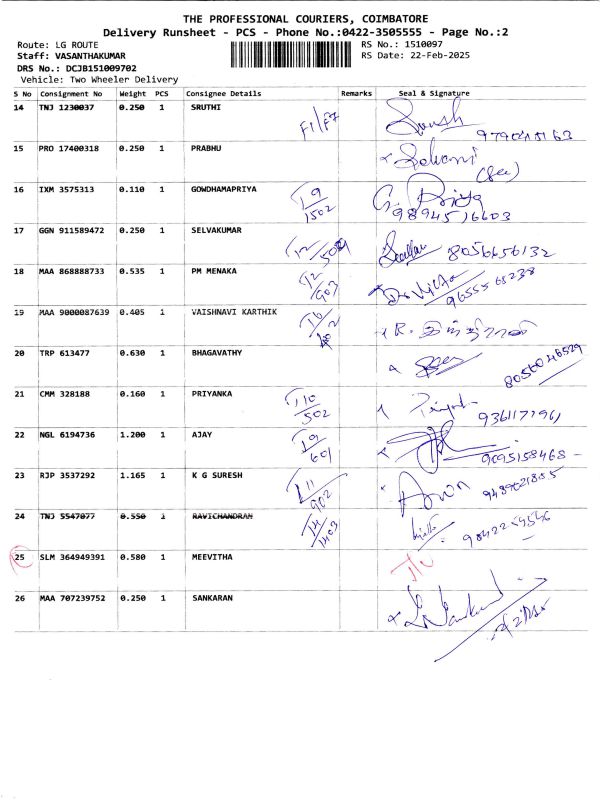 THE PROFESSIONAL COURIERS, COIMBATORE
Delivery Runsheet - PCS - Phone No.:0422-3505555 - Page No.:2
Route: LG ROUTE
RS No.: 1510097
Staff: VASANTHAKUMAR
RS Date: 22-Feb-2025
DRS No.: DCJB151009702
Vehicle: Two Wheeler Delivery
S No Consignment No Weight PCS Consignee Details Remarks Seal & Signature
14 TNJ 1230037 0.250 1 SRUTHI F1/F7
15 PRO 17400318 0.250 1 PRABHU
16 IXM 3575313 0.110 1 GOWDHAMAPRIYA T9/1502 G. Priya
9894516603
17 GGN 911589472 0.250 1 SELVAKUMAR 8056656132
18 MAA 868888733 0.535 1 PM MENAKA T2/903
19 MAA 9000087639 0.405 1 VAISHNAVI KARTHIK
20 TRP 613477 0.630 1 BHAGAVATHY 8056046529
21 CMM 328188 0.160 1 PRIYANKA T10/502
22 NGL 6194736 1.200 1 AJAY T9/601 9095158468
23 RJP 3537292 1.165 1 K G SURESH T11/902
24 TNJ 5547077 0.550 1 RAVICHANDRAN T14/1403
25 SLM 364949391 0.580 1 MEEVITHA
26 MAA 707239752 0.250 1 SANKARAN